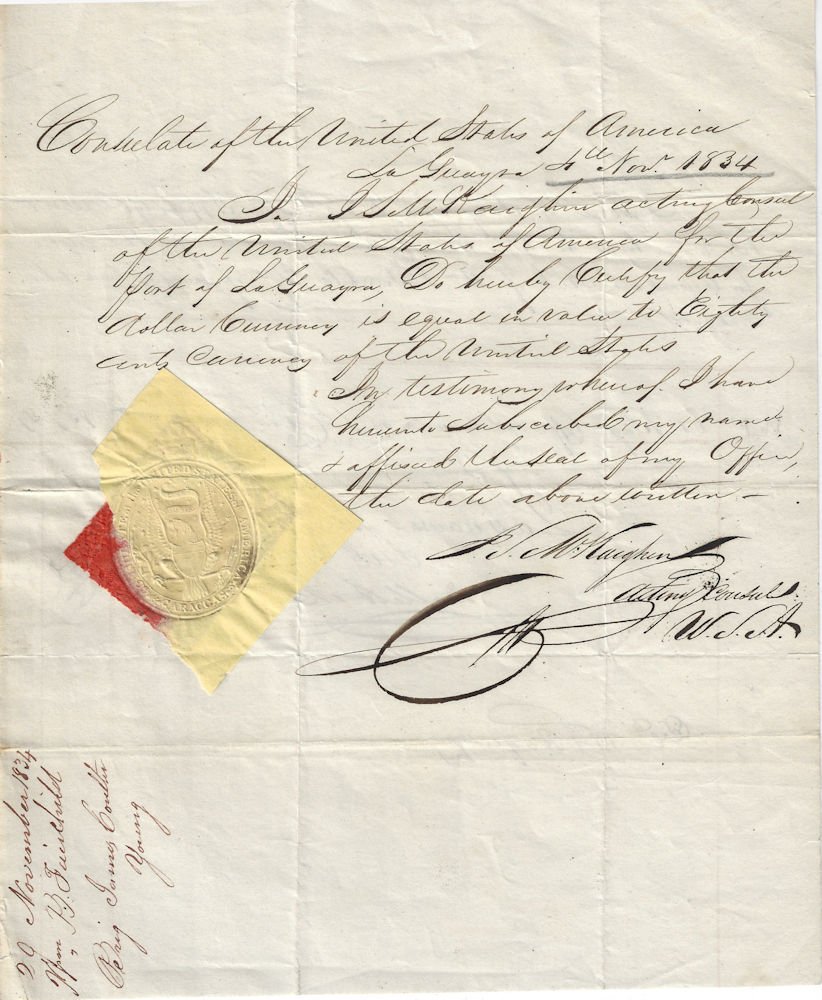 Consulate of the United States of America
La Guayra 4th Nov. 1834
I. J. S. McKaighin acting Consul
of the United States of America for the
Port of LaGuayra, Do hereby Certify that the
dollar Currency is equal in value to Eighty
cents Currency of the United States
In testimony whereof I have
hereunto Subscribed my name
& affixed the seal of my Office,
the date above written –
J. S. McKaighin
Acting Consul
U.S.A.
29 November 1834
B. Fairchild
Brig James Coulter
Young